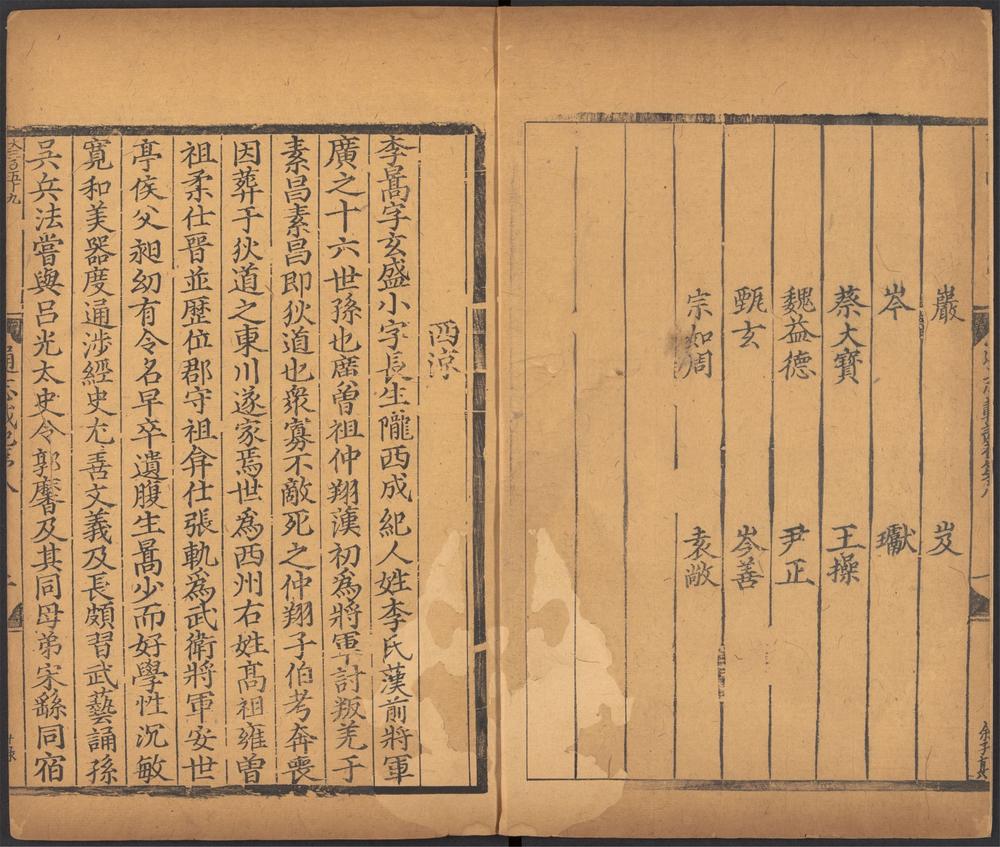 巖 岌
岑 瓛
蔡大寶 王操
魏益德 尹正
甄玄 岑善
宗如周 袁敞
西涼
李暠字玄盛小字長生隴西成紀人姓李氏漢前將軍
廣之十六世孫也廣曾祖仲翔漢初為將軍討叛羌于
素昌素昌即狄道也衆寡不敵死之仲翔子伯考奔喪
因葬于狄道之東川遂家焉世爲西州右姓高祖雍曾
祖柔仕晉並歷位郡守祖弇仕張軌爲武衛將軍安世
亭侯父昶幼有令名早卒遺腹生暠少而好學性沉敏
寬和美器度通涉經史尤善文義及長頗習武藝誦孫
吳兵法嘗與呂光太史令郭黁及其同母弟宋繇同宿